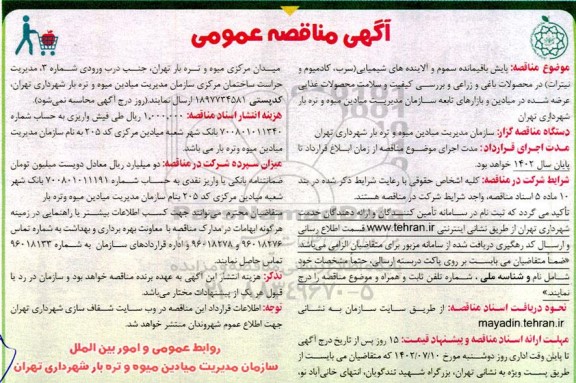 آگهی مناقصه عمومی
موضوع مناقصه: پایش باقیمانده سموم و آلاینده های شیمیایی(سرب، کادمیوم و
نیترات) در محصولات باغی و زراعی و بررسی کیفیت و سلامت محصولات غذایی
عرضه شده در میادین و بازارهای تابعه سازمان مدیریت میادین میوه و تره بار
شهرداری تهران
دستگاه مناقصه گزار: سازمان مدیریت میادین میوه و تره بار شهرداری تهران
مدت اجرای قرارداد: مدت اجرای موضوع مناقصه از زمان ابلاغ قرارداد تا
پایان سال ۱۴۰۲ خواهد بود.
شرایط شرکت در مناقصه: کلیه اشخاص حقوقی با رعایت شرایط ذکر شده در بند
۱۰ ماده ۵ اسناد مناقصه، واجد شرایط شرکت در مناقصه هستند.
تأکید می گردد که ثبت نام در سامانه تأمین کنندگان و ارائه دهندگان خدمت
شهرداری تهران از طریق نشانی اینترنتی www.tehran.ir قسمت اطلاع رسانی
و ارسال کد رهگیری دریافت شده از سامانه مزبور برای متقاضیان الزامی می‌باشد
«ضمناً متقاضیان می بایست بر روی پاکت دربسته ارسالی، حتماً مشخصات خود
شامل نام و شناسه ملی ، شماره تلفن ثابت و همراه و موضوع مناقصه را درج
نمایند.»
نحوه دریافت اسناد مناقصه: از طریق سایت سازمان به نشانی
mayadin.tehran.ir
مهلت ارائه اسناد مناقصه و پیشنهاد قیمت: ۱۵ روز پس از تاریخ درج آگهی
تا پایان وقت اداری روز دوشنبه مورخ ۱۴۰۲/۰۷/۱۰ که متقاضیان می بایست از
طریق پست ویژه به نشانی تهران، بزرگراه شهید تندگویان، انتهای خانی‌آباد نو،
میدان مرکزی میوه و تره بار تهران، جنب درب ورودی شماره ۳، مدیریت
حراست ساختمان مرکزی سازمان مدیریت میادین میوه و تره بار شهرداری تهران،
کدپستی ۱۸۹۷۷۳۴۵۸۱ ارسال نمایند.(روز درج آگهی محاسبه نمی‌شود)
هزینه انتشار اسناد مناقصه: ۱,۰۰۰,۰۰۰ ریال طی فیش واریزی به حساب شماره
۷۰۰۸۰۱۰۱۱۳۴۰ بانک شهر شعبه میادین مرکزی کد ۲۰۵ به نام سازمان مدیریت
میادین میوه وتره بار می باشد.
میزان سپرده شرکت در مناقصه: دو میلیارد ریال معادل دویست میلیون تومان
ضمانتنامه بانکی یا واریز نقدی به حساب شماره ۷۰۰۸۰۱۰۱۱۱۹۱ بانک شهر
شعبه میادین مرکزی کد ۲۰۵ بنام سازمان مدیریت میادین میوه وتره بار
متقاضیان محترم می‌توانند جهت کسب اطلاعات بیشتر یا راهنمایی در زمینه
هرگونه ابهامات در مدارک مناقصه با معاونت بهره برداری و بهداشت به شماره تماس
۹۶۰۱۸۲۷۶ و ۹۶۰۱۸۲۷۸ و اداره قراردادهای سازمان به شماره ۹۶۰۱۸۱۳۳
تماس حاصل نمایند.
تذکر: هزینه انتشار این آگهی به عهده برنده مناقصه خواهد بود و سازمان در رد یا
قبول هر یک از پیشنهادات مختار می‌باشد.
توجه: اطلاعات قرارداد این مناقصه در وب سایت شفاف سازی شهرداری تهران
جهت اطلاع عموم شهروندان منتشر خواهد شد.
روابط عمومی و امور بین الملل
سازمان مدیریت میادین میوه و تره بار شهرداری تهران